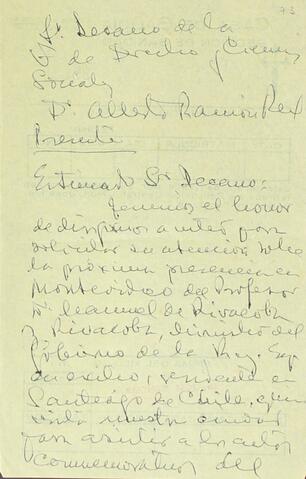 73
Sr. Decano de la
F. de Derecho y Cienc.
Sociales
Dr. Alberto Ramón Real
Presente
Estimado Sr Decano:
Tenemos el honor
de dirigirnos a usted para
solicitar su atención sobre
la próxima presencia en
Montevideo del Profesor
Dr. Manuel de Rivacoba
y Rivacoba, Ministro del
Gobierno de la Rep. Esp.
en exilio, residente en
Santiago de Chile, quien
visita nuestra ciudad
para asistir a los actos
conmemorativos del